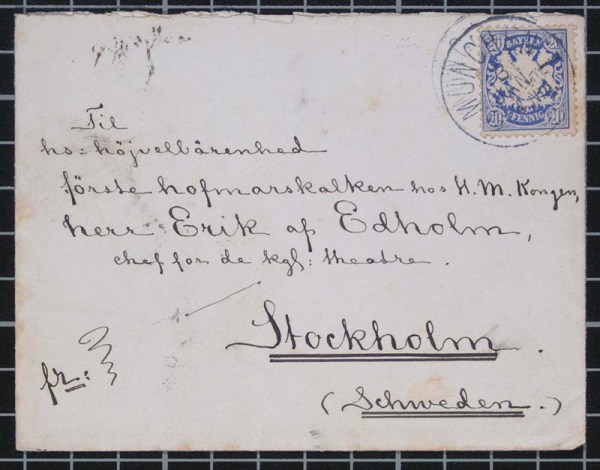 Til
hs: höjvelbårenhed
förste hofmarskalken hos H. M. Kongen,
herr Erik af Edholm,
chef for de kgl: theatre.
Stockholm.
(Schweden.)
fr:
BAYERN
20 20
PFENNIG
MÜNCH